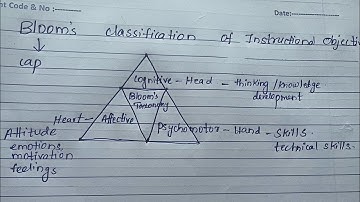 nt Code & No :
Date:
Bloom's classification of Instructional Objecti
↓
cap
cognitive - Head - thinking / knowledge
development
Bloom's
Taxonomy
Heart - Affective
Psychomotor - Hand - skills.
technical skills.
Attitude
emotions,
motivation
feelings